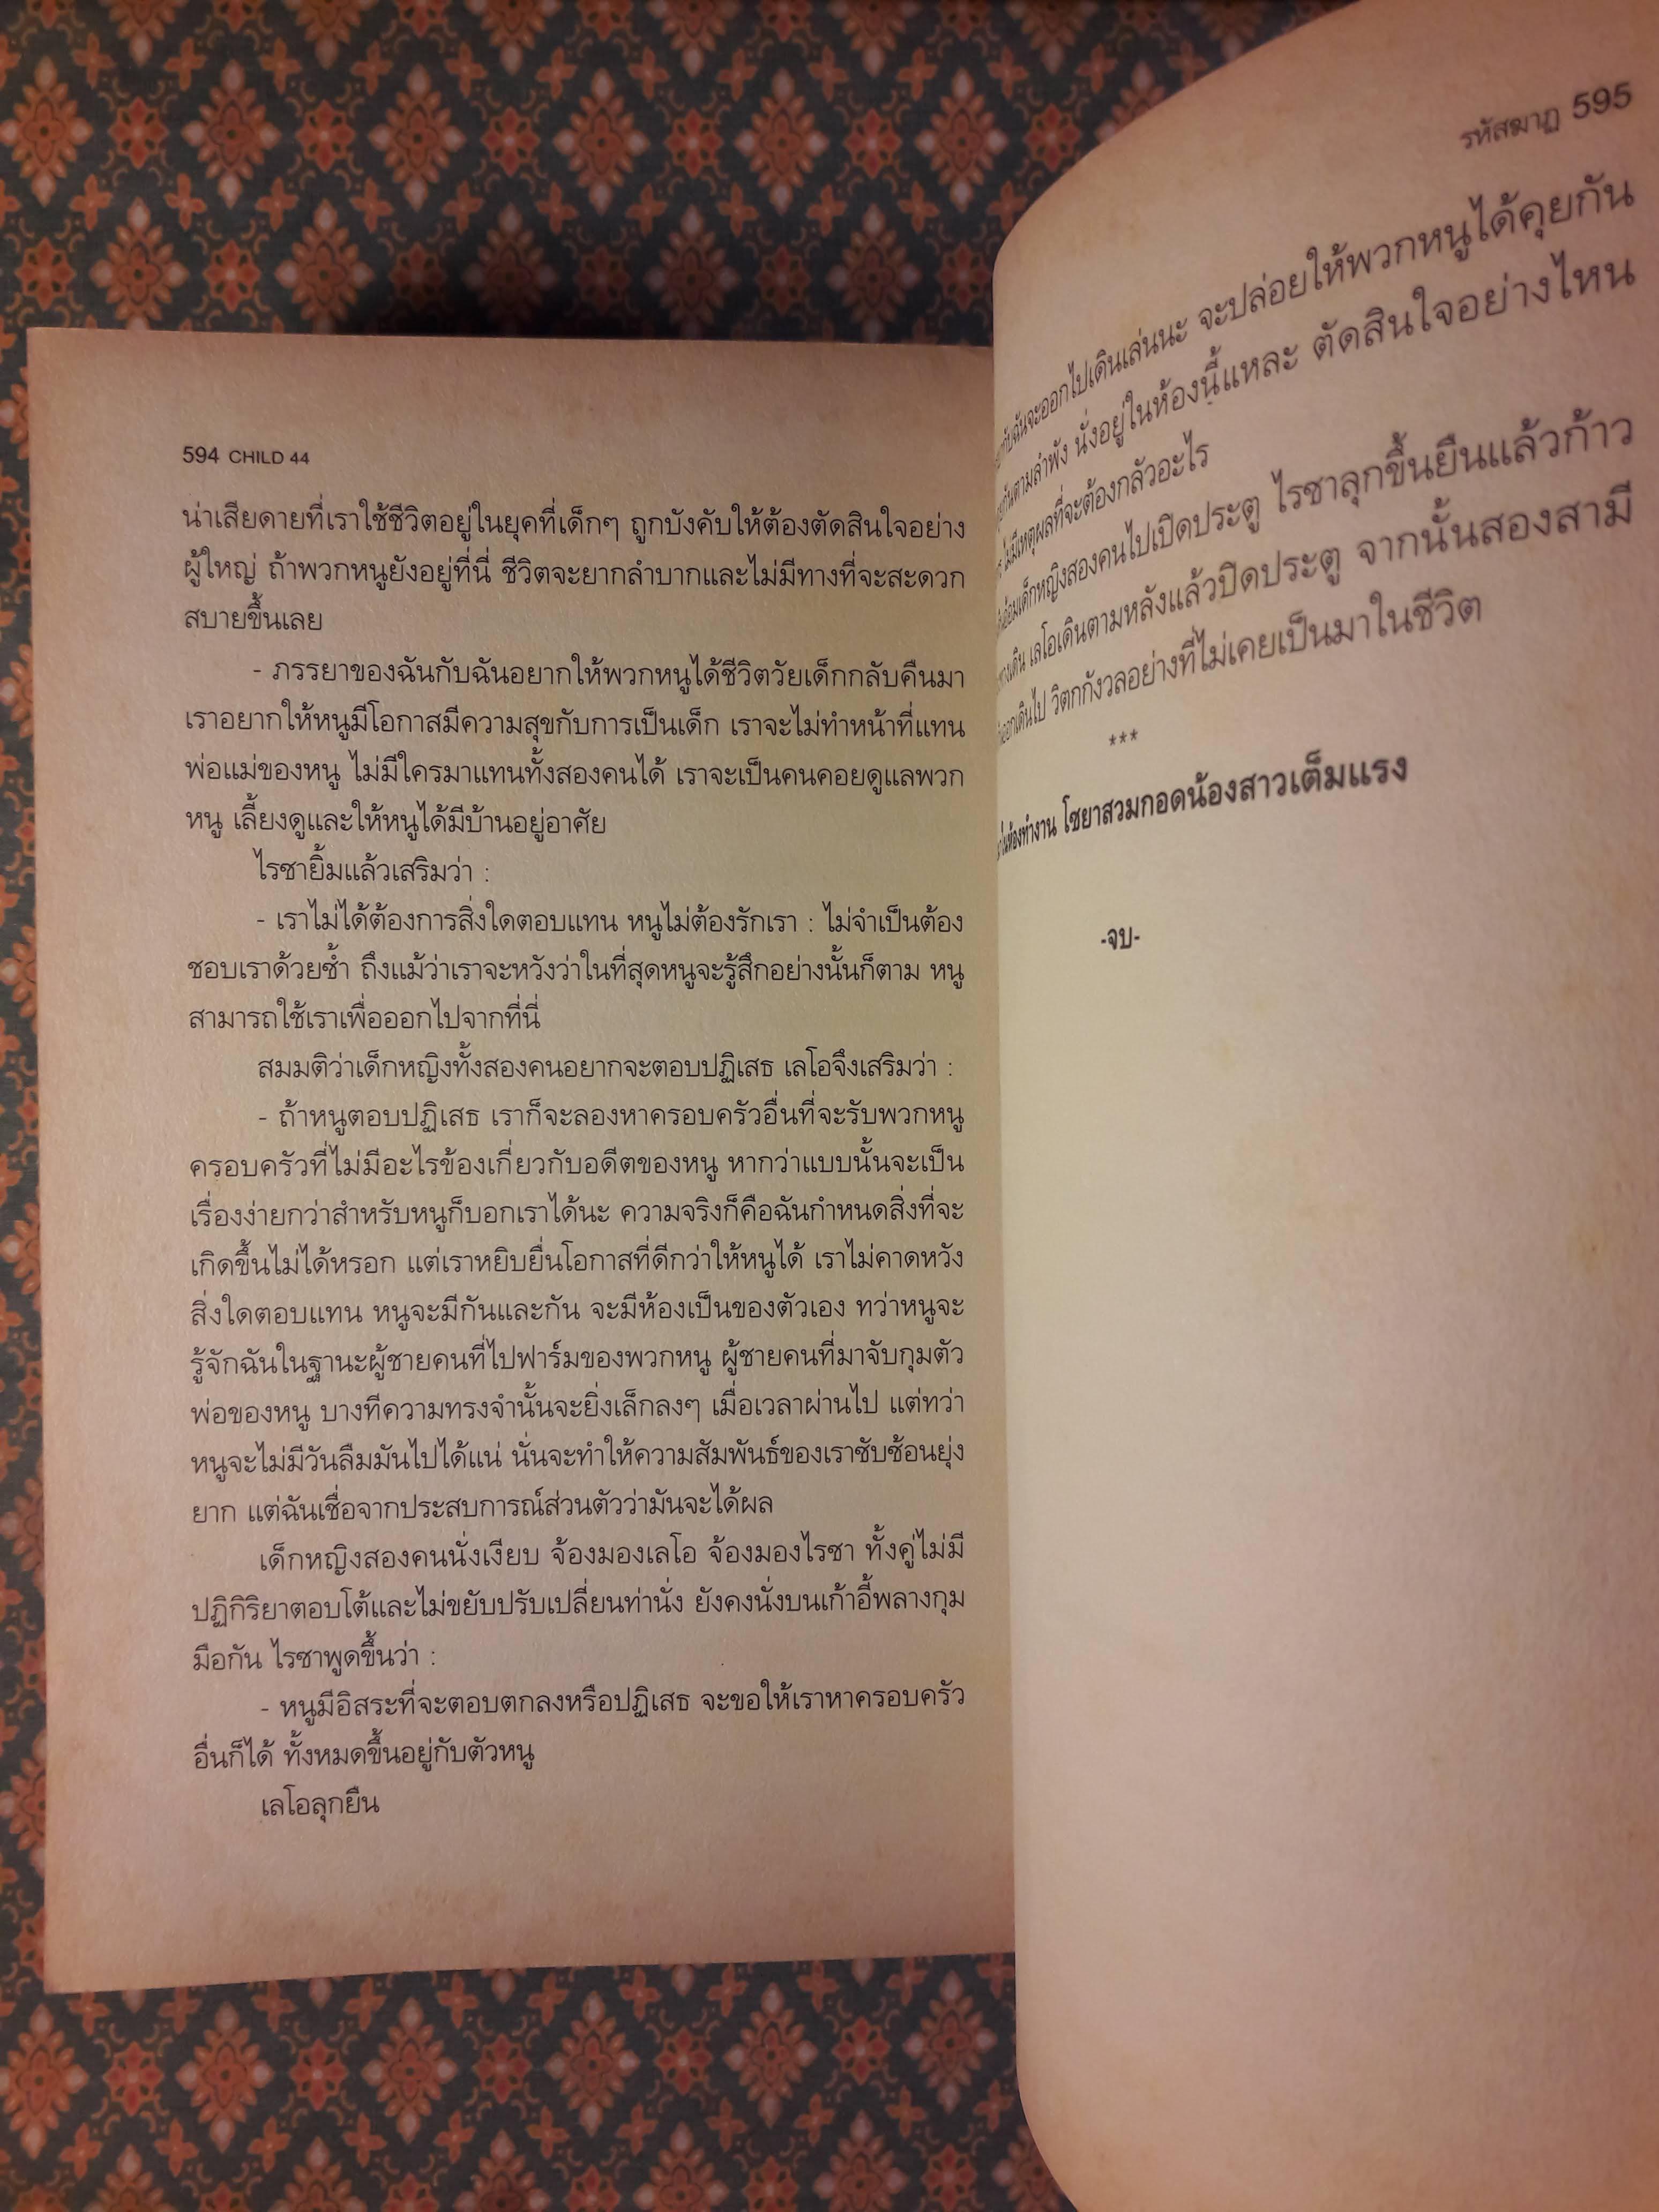 594 CHILD 44
น่าเสียดายที่เราใช้ชีวิตอยู่ในยุคที่เด็กๆ ถูกบังคับให้ต้องตัดสินใจอย่าง
ผู้ใหญ่ ถ้าพวกหนูยังอยู่ที่นี่ ชีวิตจะยากลำบากและไม่มีทางที่จะสะดวก
สบายขึ้นเลย
- ภรรยาของฉันกับฉันอยากให้พวกหนูได้ชีวิตวัยเด็กกลับคืนมา
เราอยากให้หนูมีโอกาสมีความสุขกับการเป็นเด็ก เราจะไม่ทำหน้าที่แทน
พ่อแม่ของหนู ไม่มีใครมาแทนทั้งสองคนได้ เราจะเป็นคนคอยดูแลพวก
หนู เลี้ยงดูและให้หนูได้มีบ้านอยู่อาศัย
ไรซายิ้มแล้วเสริมว่า :
- เราไม่ได้ต้องการสิ่งใดตอบแทน หนูไม่ต้องรักเรา : ไม่จำเป็นต้อง
ชอบเราด้วยซ้ำ ถึงแม้ว่าเราจะหวังว่าในที่สุดหนูจะรู้สึกอย่างนั้นก็ตาม หนู
สามารถใช้เราเพื่อออกไปจากที่นี่
สมมติว่าเด็กหญิงทั้งสองคนอยากจะตอบปฏิเสธ เลโอจึงเสริมว่า :
- ถ้าหนูตอบปฏิเสธ เราก็จะลองหาครอบครัวอื่นที่จะรับพวกหนู
ครอบครัวที่ไม่มีอะไรข้องเกี่ยวกับอดีตของหนู หากว่าแบบนั้นจะเป็น
เรื่องง่ายกว่าสำหรับหนูก็บอกเราได้นะ ความจริงก็คือฉันกำหนดสิ่งที่จะ
เกิดขึ้นไม่ได้หรอก แต่เราหยิบยื่นโอกาสที่ดีกว่าให้หนูได้ เราไม่คาดหวัง
สิ่งใดตอบแทน หนูจะมีกันและกัน จะมีห้องเป็นของตัวเอง ทว่าหนูจะ
รู้จักฉันในฐานะผู้ชายคนที่ไปฟาร์มของพวกหนู ผู้ชายคนที่มาจับกุมตัว
พ่อของหนู บางทีความทรงจำนั้นจะยิ่งเล็กลงๆ เมื่อเวลาผ่านไป แต่ทว่า
หนูจะไม่มีวันลืมมันไปได้แน่ นั่นจะทำให้ความสัมพันธ์ของเราซับซ้อนยุ่ง
ยาก แต่ฉันเชื่อจากประสบการณ์ส่วนตัวว่ามันจะได้ผล
เด็กหญิงสองคนนั่งเงียบ จ้องมองเลโอ จ้องมองไรซา ทั้งคู่ไม่มี
ปฏิกิริยาตอบโต้และไม่ขยับปรับเปลี่ยนท่านั่ง ยังคงนั่งบนเก้าอี้พลางกุม
มือกัน ไรซาพูดขึ้นว่า :
- หนูมีอิสระที่จะตอบตกลงหรือปฏิเสธ จะขอให้เราหาครอบครัว
อื่นก็ได้ ทั้งหมดขึ้นอยู่กับตัวหนู
เลโอลุกยืน
รหัสฆาฏ 595
กับฉันจะออกไปเดินเล่นนะ จะปล่อยให้พวกหนูได้คุยกัน
กันตามลำพัง นั่งอยู่ในห้องนี้แหละ ตัดสินใจอย่างไหน
ไม่มีเหตุผลที่จะต้องกลัวอะไร
เด็กหญิงสองคนไปเปิดประตู ไรซาลุกขึ้นยืนแล้วก้าว
เลโอเดินตามหลังแล้วปิดประตู จากนั้นสองสามี
ออกเดินไป วิตกกังวลอย่างที่ไม่เคยเป็นมาในชีวิต
***
ห้องทำงาน โซยาสวมกอดน้องสาวเต็มแรง
-จบ-